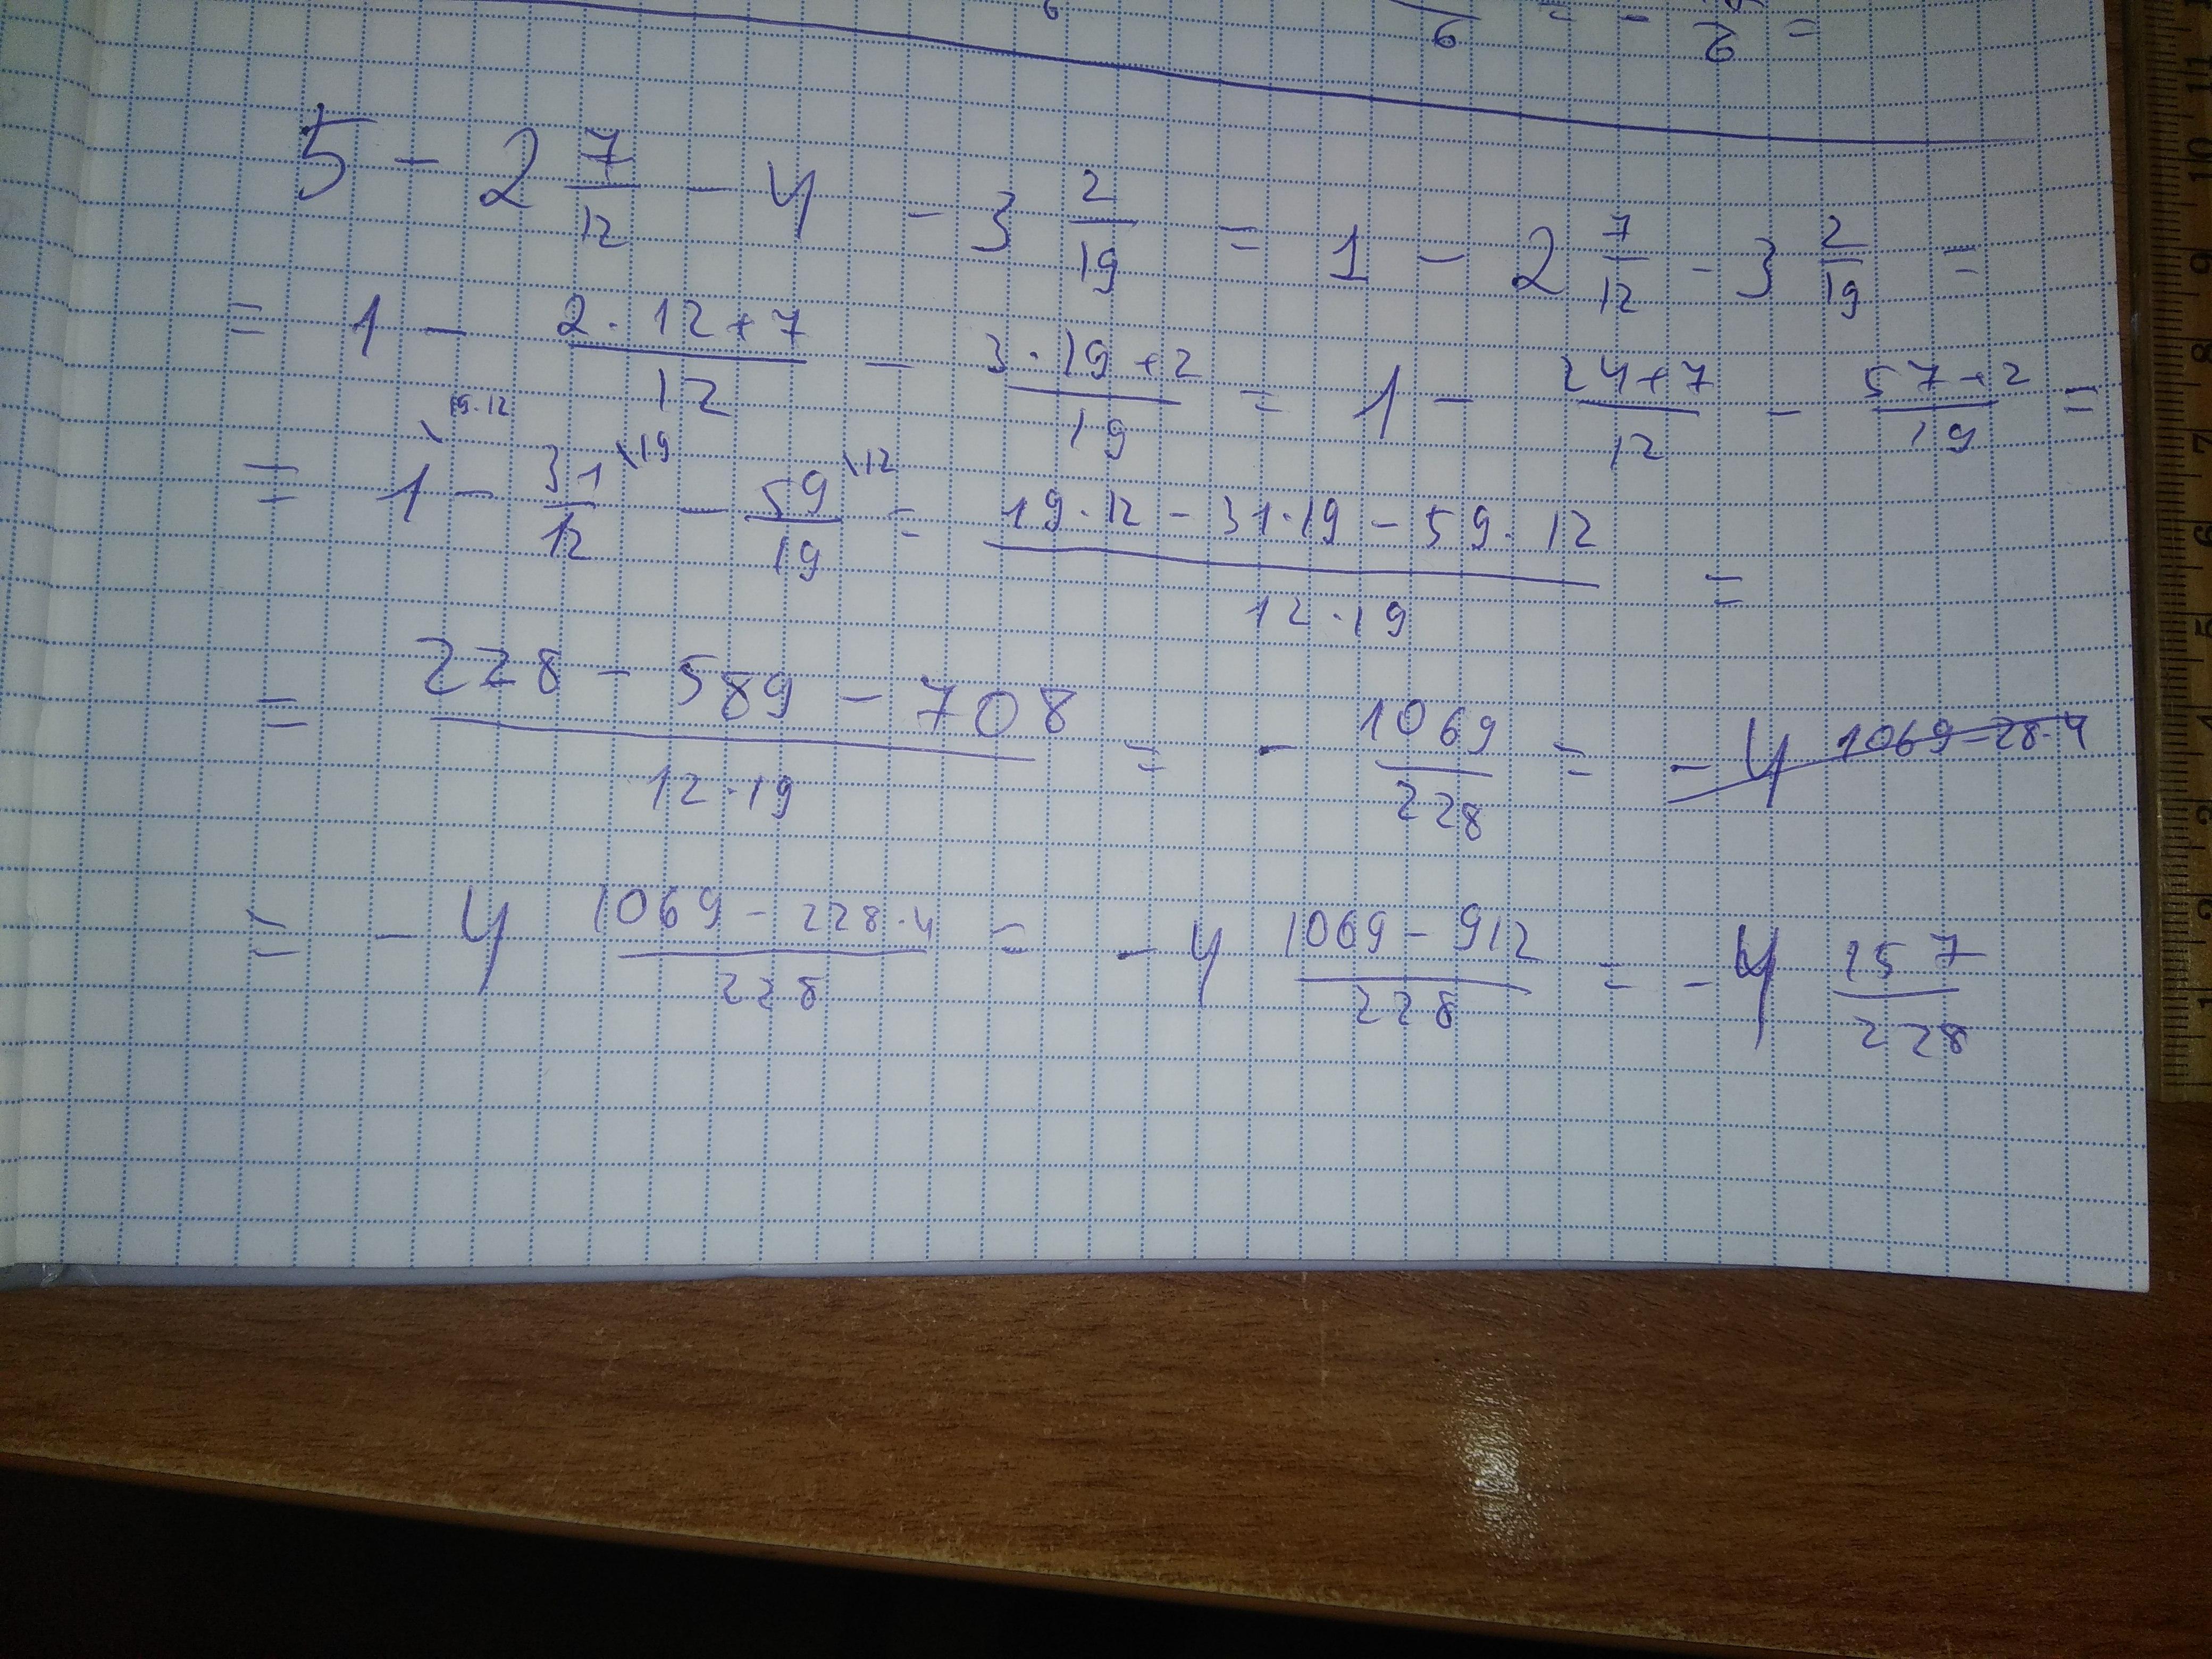 6 6 = - 6 =
5 - 2 7/12 - 4 - 3 2/19 = 1 - 2 7/12 - 3 2/19 =
= 1 - (2·12+7)/12 - (3·19+2)/19 = 1 - (24+7)/12 - (57+2)/19 =
= 1\19·12 - 31/12\19 - 59/19\12 = (19·12 - 31·19 - 59·12)/(12·19) =
= (228 - 589 - 708)/(12·19) = - 1069/228 = - 4 1069-28·4
= - 4 (1069 - 228·4)/228 = - 4 (1069 - 912)/228 = - 4 157/228
11
10
9
8
7
6
5
4
3
2
1